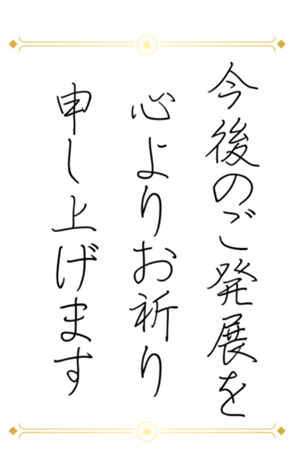 今後のご発展を
心よりお祈り
申し上げます